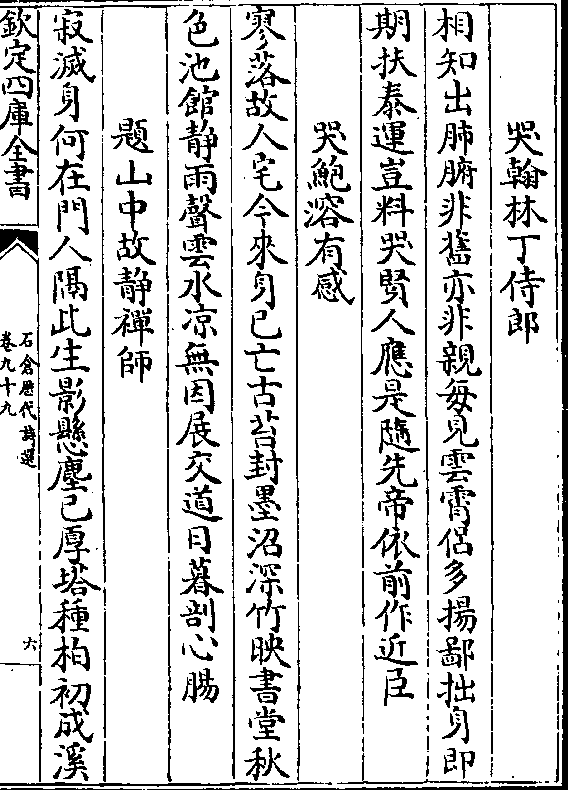 哭翰林丁侍郎
相知出肺腑非舊亦非親每見雲霄侣多揚鄙拙身即
期扶泰運豈料哭賢人應是隨先帝依前作近臣
哭鮑溶有感
寥落故人宅今來身已亡古苔封墨沼深竹映書堂秋
色池館静雨聲雲水凉無因展交道日暮剖心腸
題山中故静禪師
寂滅身何在門人隔此生影懸塵已厚塔種柏初成溪
欽定四庫全書
石倉歷代詩選
卷九十九
六